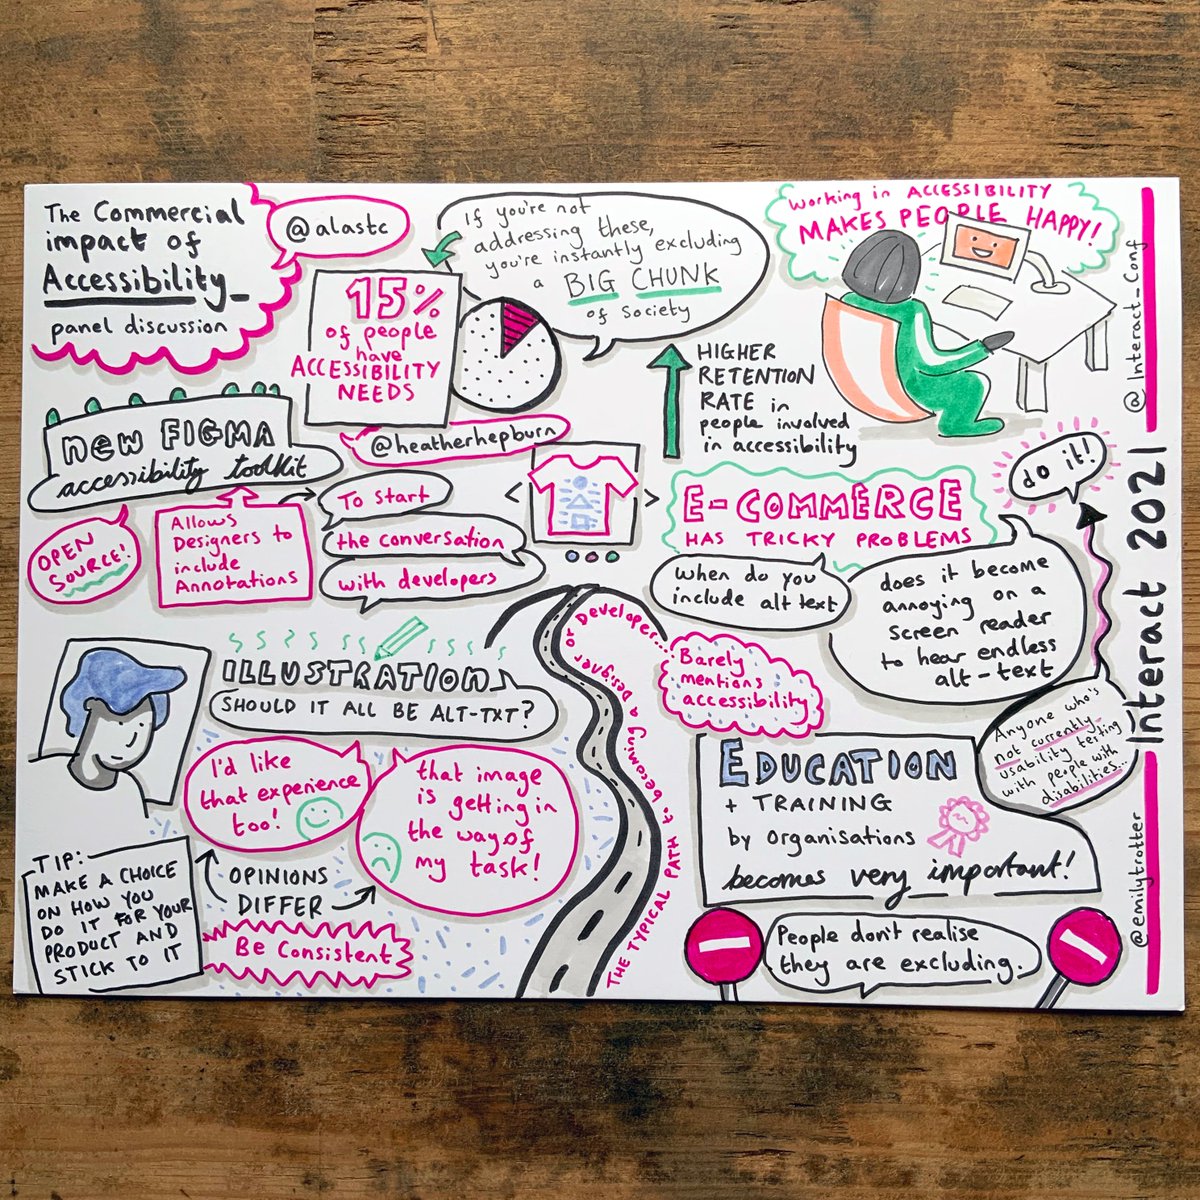 The Commercial
impact of
Accessibility_
panel discussion
@alastc
15%
of people
have
ACCESSIBILITY
NEEDS
If you're not
addressing these,
you're instantly excluding
a BIG CHUNK
of Society
Working in ACCESSIBILITY
MAKES PEOPLE HAPPY!
HIGHER
RETENTION
RATE in
people involved
in accessibility
new FIGMA
accessibility toolkit
@heatherhepburn
OPEN
SOURCE!
Allows
Designers to
include
Annotations
To start
the conversation
with developers
E-COMMERCE
HAS TRICKY PROBLEMS
when do you
include alt text
does it become
annoying on a
screen reader
to hear endless
alt-text
do it!
Anyone who's
not currently
usability testing
with people with
disabilities...
ILLUSTRATION
SHOULD IT ALL BE ALT-TXT?
I'd like
that experience
too!
that image
is getting in
the way of
my task!
OPINIONS
DIFFER
Be Consistent
TIP:
MAKE A CHOICE
ON HOW YOU
DO IT FOR YOUR
PRODUCT AND
STICK TO IT
THE TYPICAL PATH to becoming a Designer or Developer...
Barely
mentions
accessibility
EDUCATION
+ TRAINING
by organisations
becomes very important!
People don't realise
they are excluding.
@Interact_Conf
Interact 2021
@emilytrotter